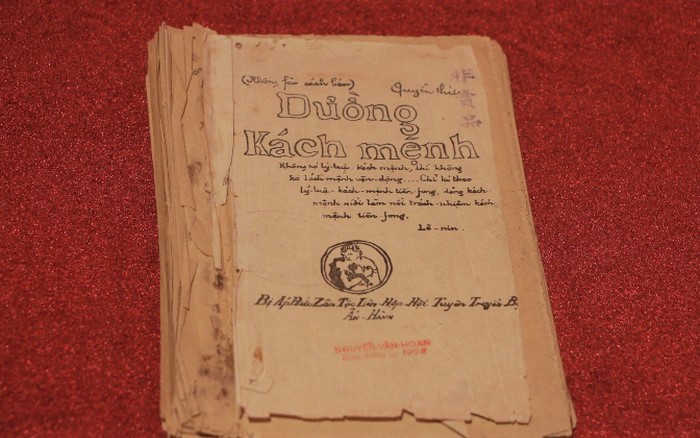 (Không fải sách bán) Quyển thứ
非賣品
Đường
Kách mệnh
Không có lý luận kách mệnh, thì không
có kách mệnh vận-động.... Chỉ có theo
lý luận kách-mệnh tiền fong, đảng kách
mệnh mới làm nổi trách-nhiệm kách
mệnh tiền fong.
Lê-nin.
Bị Áp Bức Zân Tộc Liên Hợp Hội Tuyên Truyền Bộ
Ấn-Hành
NGUYỄN-VĂN-HOAN